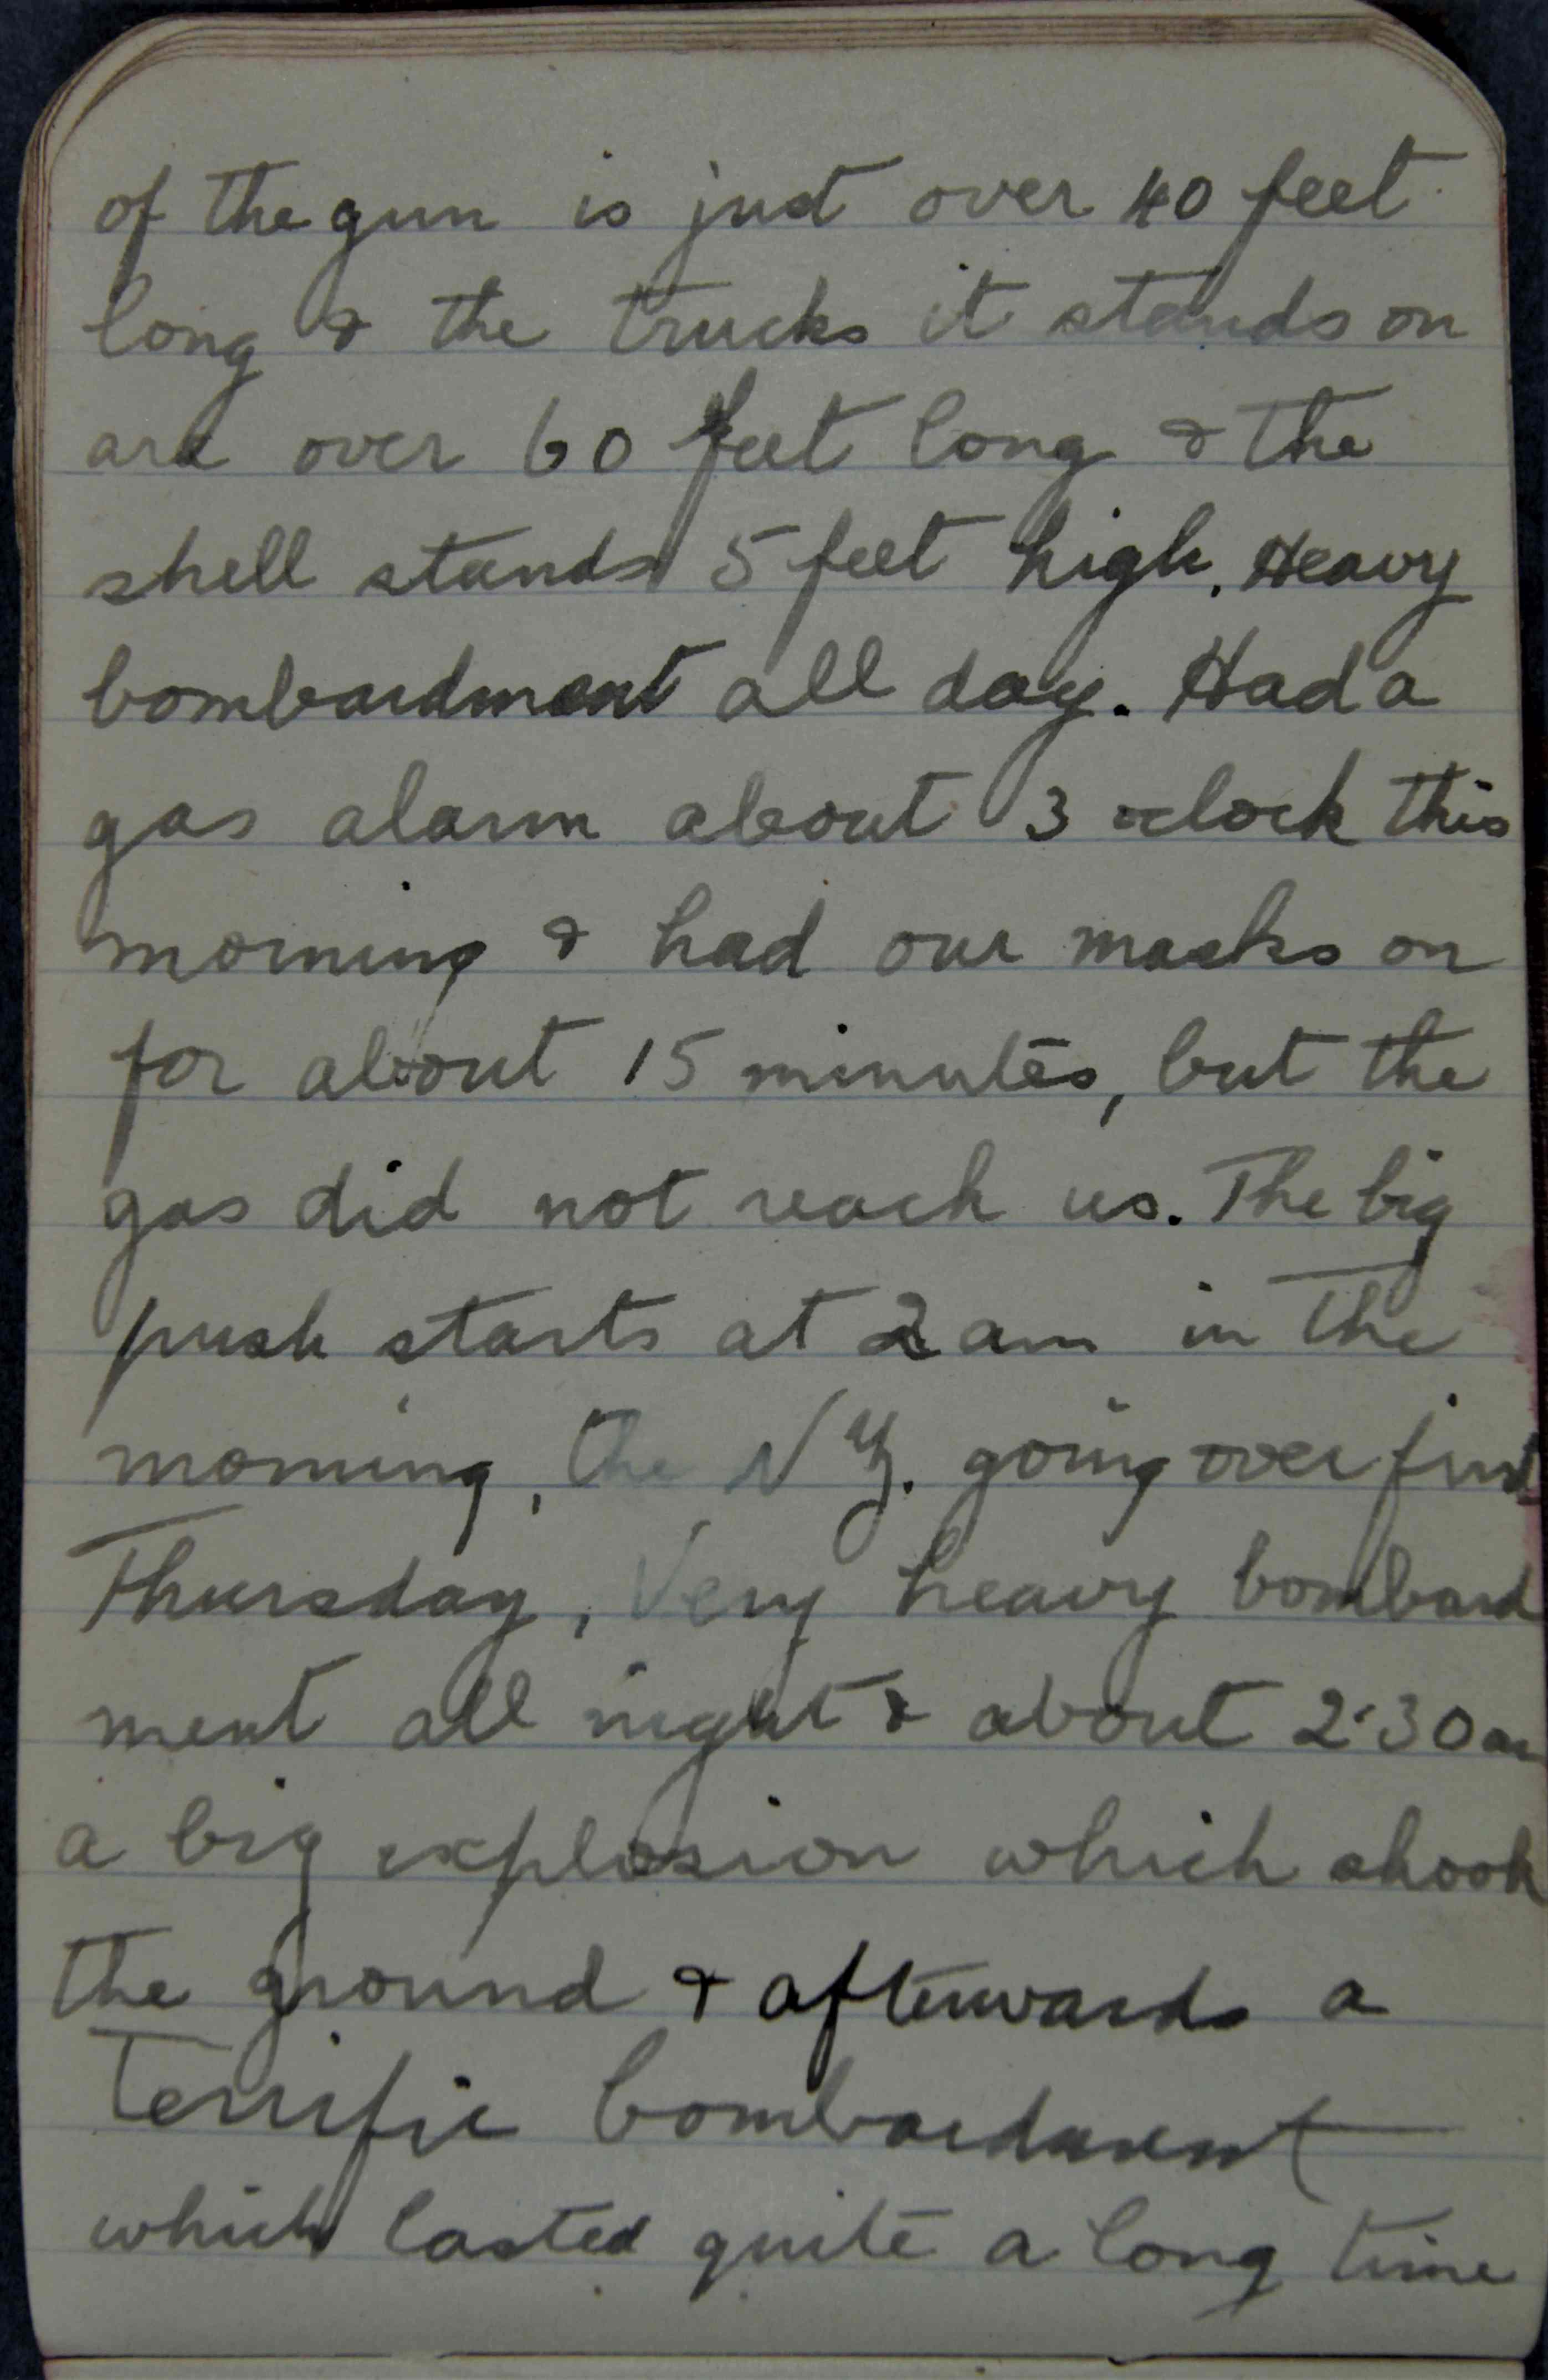 of the gun is just over 40 feet
long & the trucks it stands on
are over 60 feet long & the
shell stands 5 feet high. Heavy
bombardment all day. Had a
gas alarm about 3 oclock this
morning & had our masks on
for about 15 minutes, but the
gas did not reach us. The big
push starts at 2 am in the
morning, the N Z. going over first
Thursday, Very heavy bombard
ment all night & about 2.30 am
a big explosion which shook
the ground & afterwards a
Terrific bombardment
which lasted quite a long time